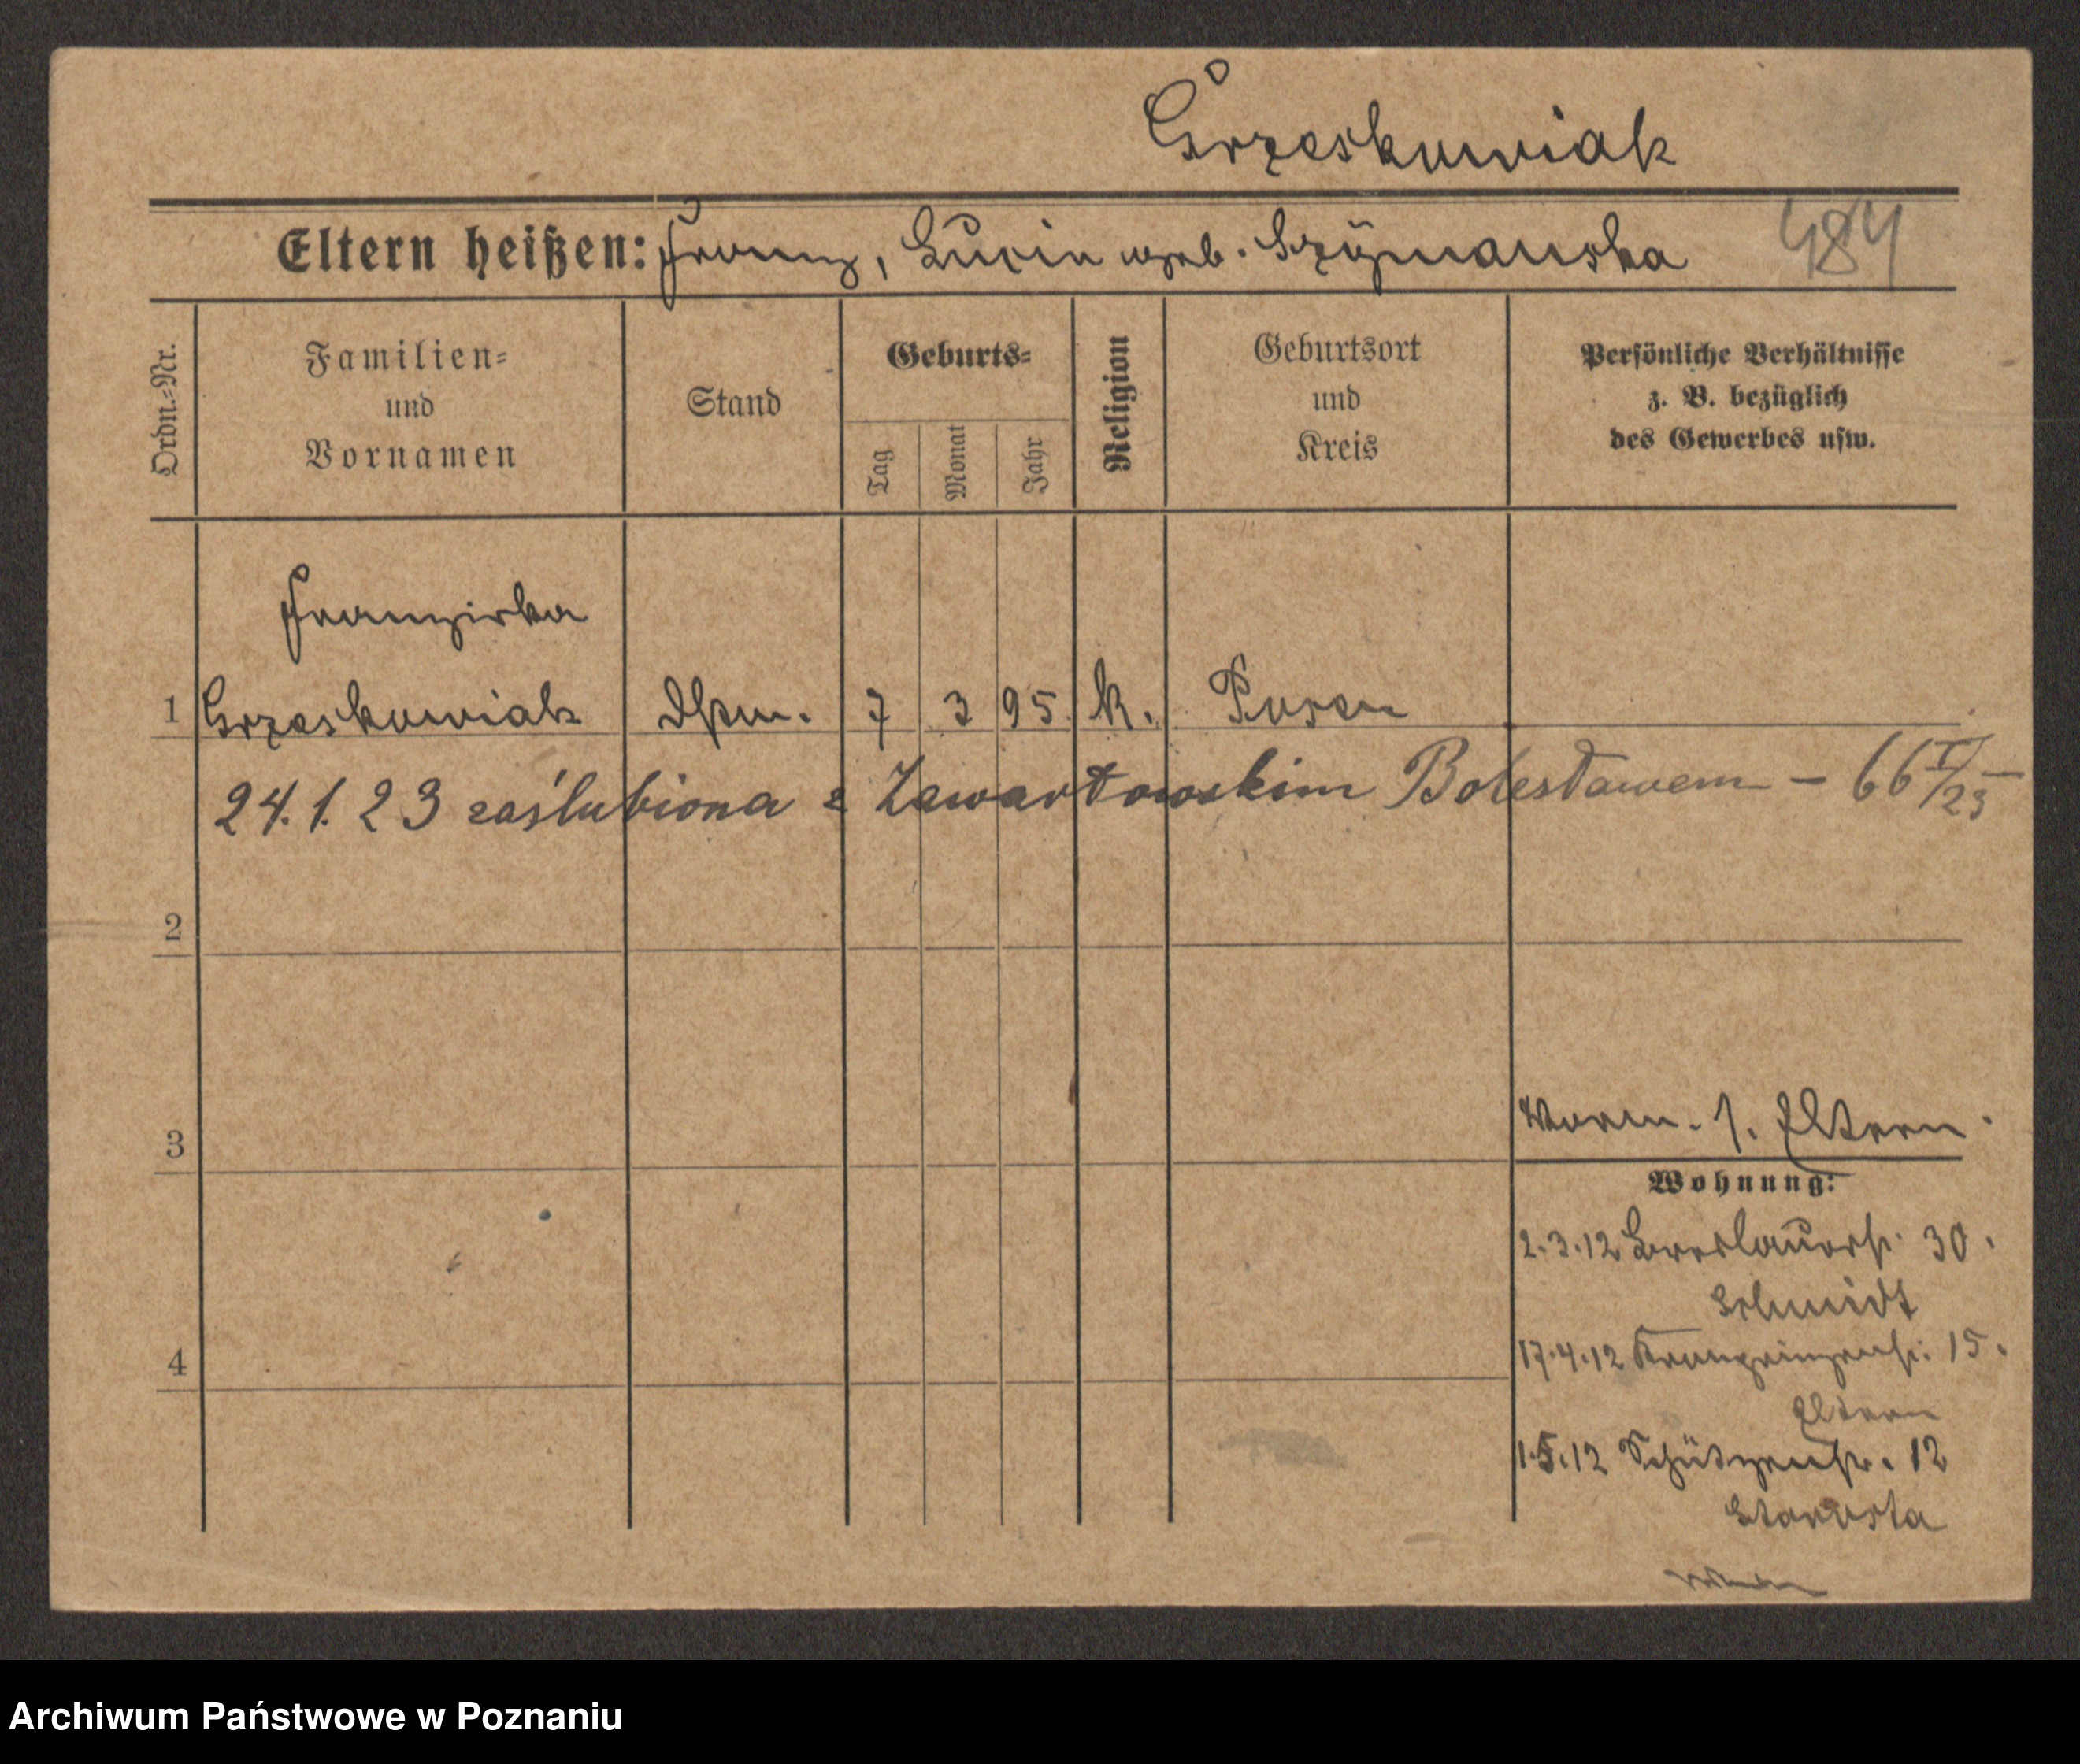 Grzeskowiak
Eltern heißen: Franz, Lucia geb. Szÿmanska 484
Ordn.=Nr.
Familien=
und
Vornamen
Stand
Geburts=
Tag
Monat
Jahr
Religion
Geburtsort
und
Kreis
Persönliche Verhältnisse
z. B. bezüglich
des Gewerbes usw.
Franziska
1 Grzeskowiak 7 3 95. k. Posen
24.1.23 zaślubiona z Zawartowskim Bolesławem – 66 I/23
2
3
Vorm. s. Eltern.
Wohnung:
2.3.12 Breslauerstr. 30.
Schmidt
4
17.4.12 Kronprinzenstr. 15.
Eltern
1.5.12 Schützenstr. 12
Starosta
Archiwum Państwowe w Poznaniu